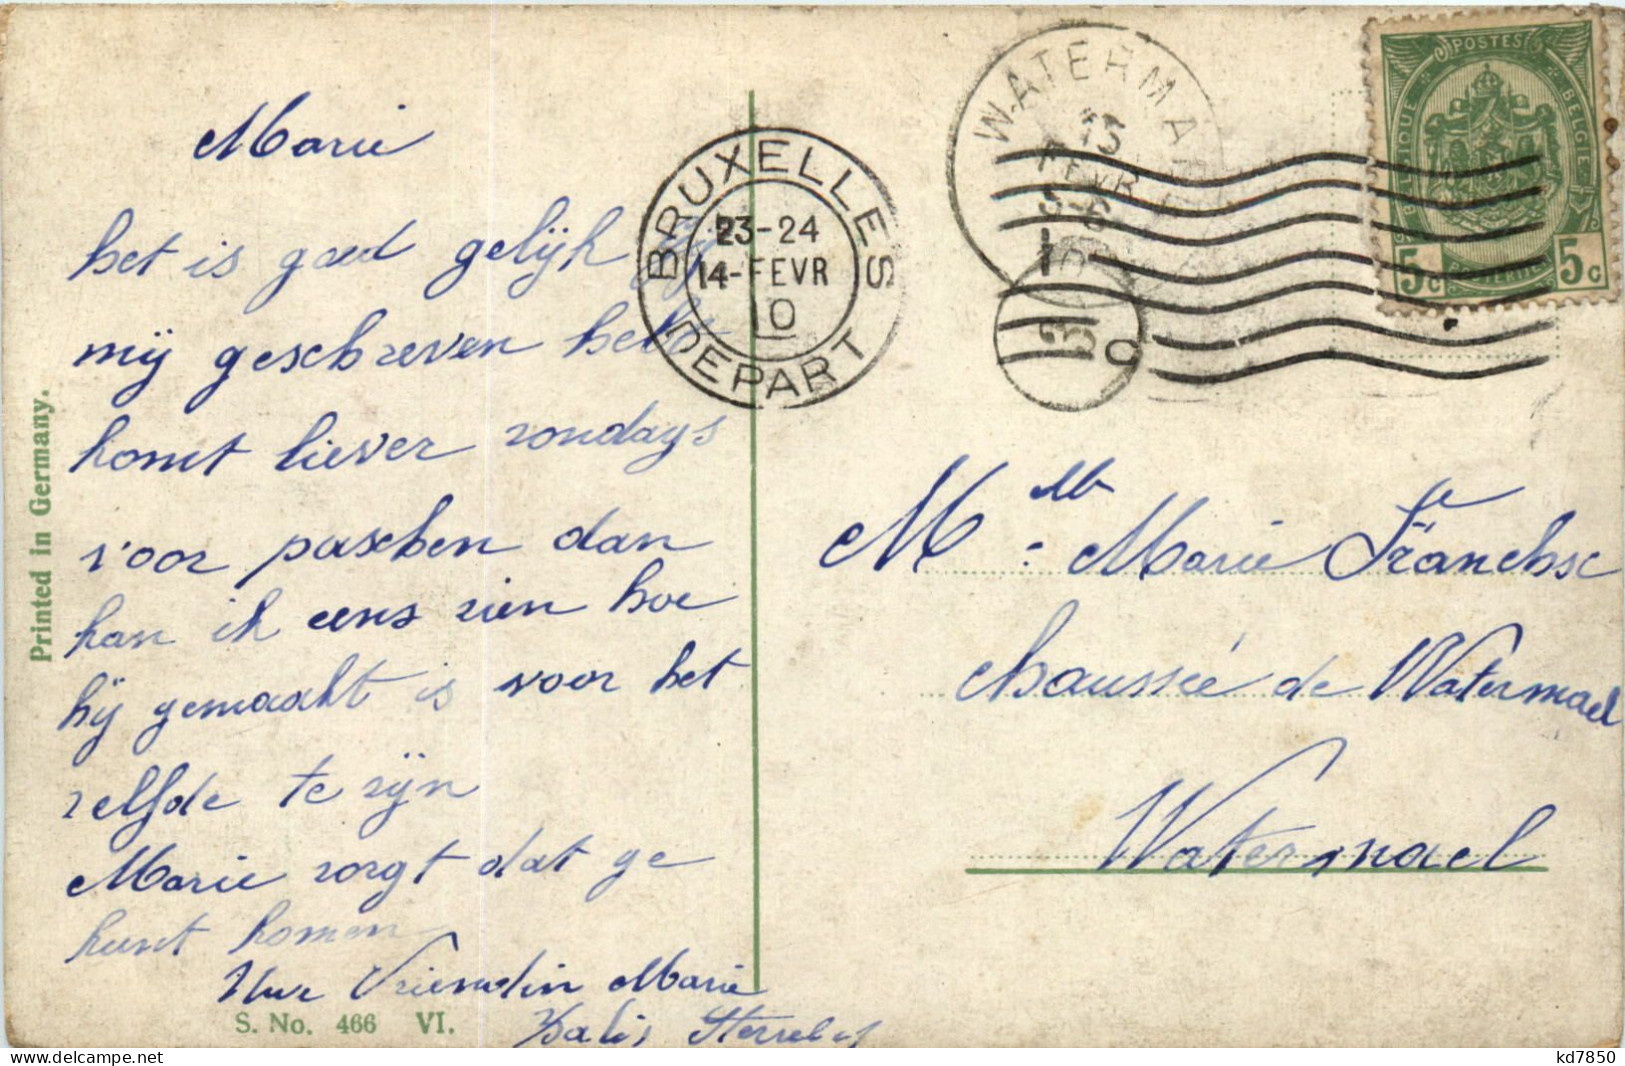 Marie
het is goed gelijk gij
mij geschreven hebt
komt liever zondags
voor paschen dan
kan ik eens zien hoe
hij gemaakt is voor het
zelfde te zijn
Marie zorgt dat ge
kunt komen
Uwe Vriendin Marie
Printed in Germany.
S. No. 466 VI.
BRUXELLES
23-24
14-FEVR
10
DEPART
WATERMA
13
FEVR
5-6
10
POSTES
BELGIQUE BELGIE
5c 5c
Mlle Marie
chaussée de Watermael
Watermael
kd7850